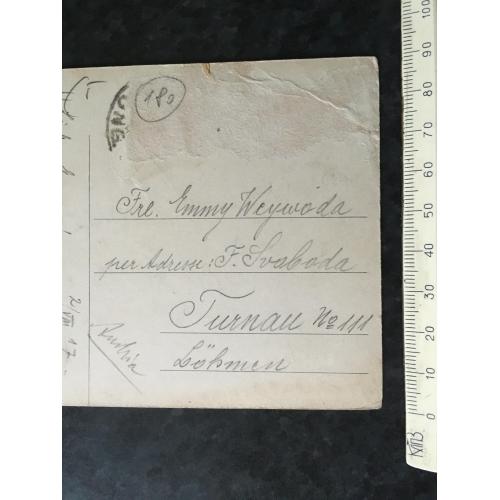 180
Fre. Emmy Weywoda
per Adresse: F. Svaboda
Turnau No 111
Böhmen
Austria
2/VII 17
0 10 20 30 40 50 60 70 80 90 100